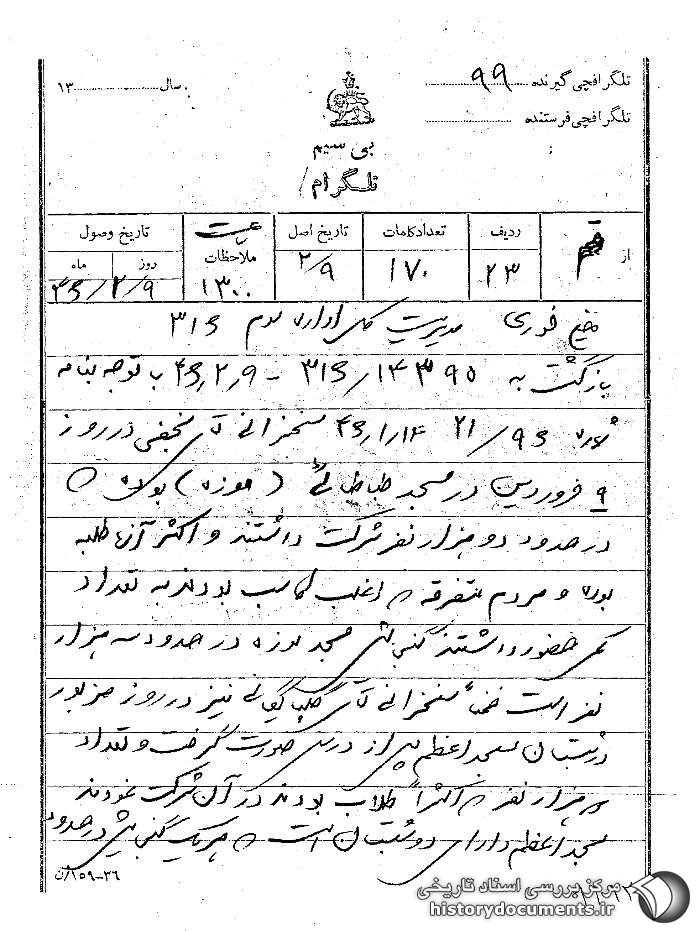 تلگرافچی گیرنده ۹۹
سال ۱۳
تلگرافچی فرستنده
بی سیم
تلگرام
از قم
ردیف ۲۳
تعداد کلمات ۱۷۰
تاریخ اصل ۲/۹
ملاحظات ۱۳۰۰
تاریخ وصول
روز ماه
۴۶/۲/۹
خیلی فوری مدیریت کل اداره سوم ۳۱۶
بازگشت به ۳۱۶/۱۴۳۹۵ - ۴۶،۲،۹ با توجه بنامه
۲۱/۹۶ ۴۶،۱،۱۴ سخنرانی آقای نجفی در روز
۹ فروردین در مسجد طباطبائی (موزه) بوده که
در حدود دو هزار نفر شرکت داشتند و اکثر آنها طلبه
بوده و مردم متفرقه که اغلب کاسب بودند به تعداد
کمی حضور داشتند گنجایش مسجد موزه در حدود سه هزار
نفر است ضمناً سخنرانی آقای گلپایگانی نیز در روز مزبور
در شبستان مسجد اعظم پس از درس صورت گرفت و تعداد
هزار نفر که اکثراً طلاب بودند در آن شرکت نمودند
مسجد اعظم دارای دو شبستان است که هر یک گنجایش در حدود
۳۶-۱۵۹/ن
مرکز بررسی اسناد تاریخی
historydocuments.ir